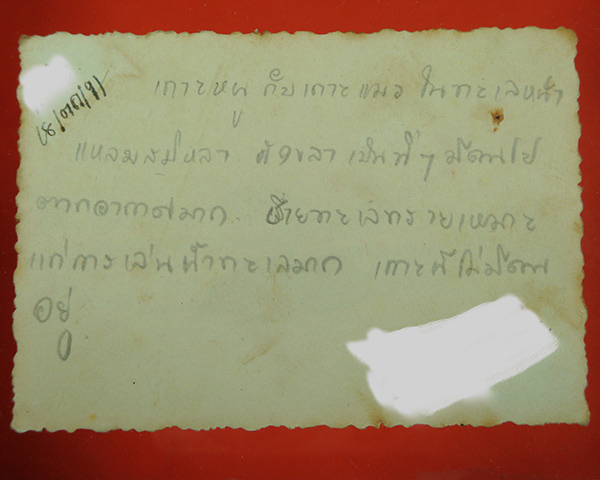 เกาะหนู กับเกาะแมว ในทะเลหน้า
แหลมสมิหลา สงขลา เป็นที่ๆ มีคนไป
ตากอากาศมาก. ชายทะเลทรายเหมาะ
แก่การเล่นน้ำทะเลมาก เกาะนี้ไม่มีคน
อยู่